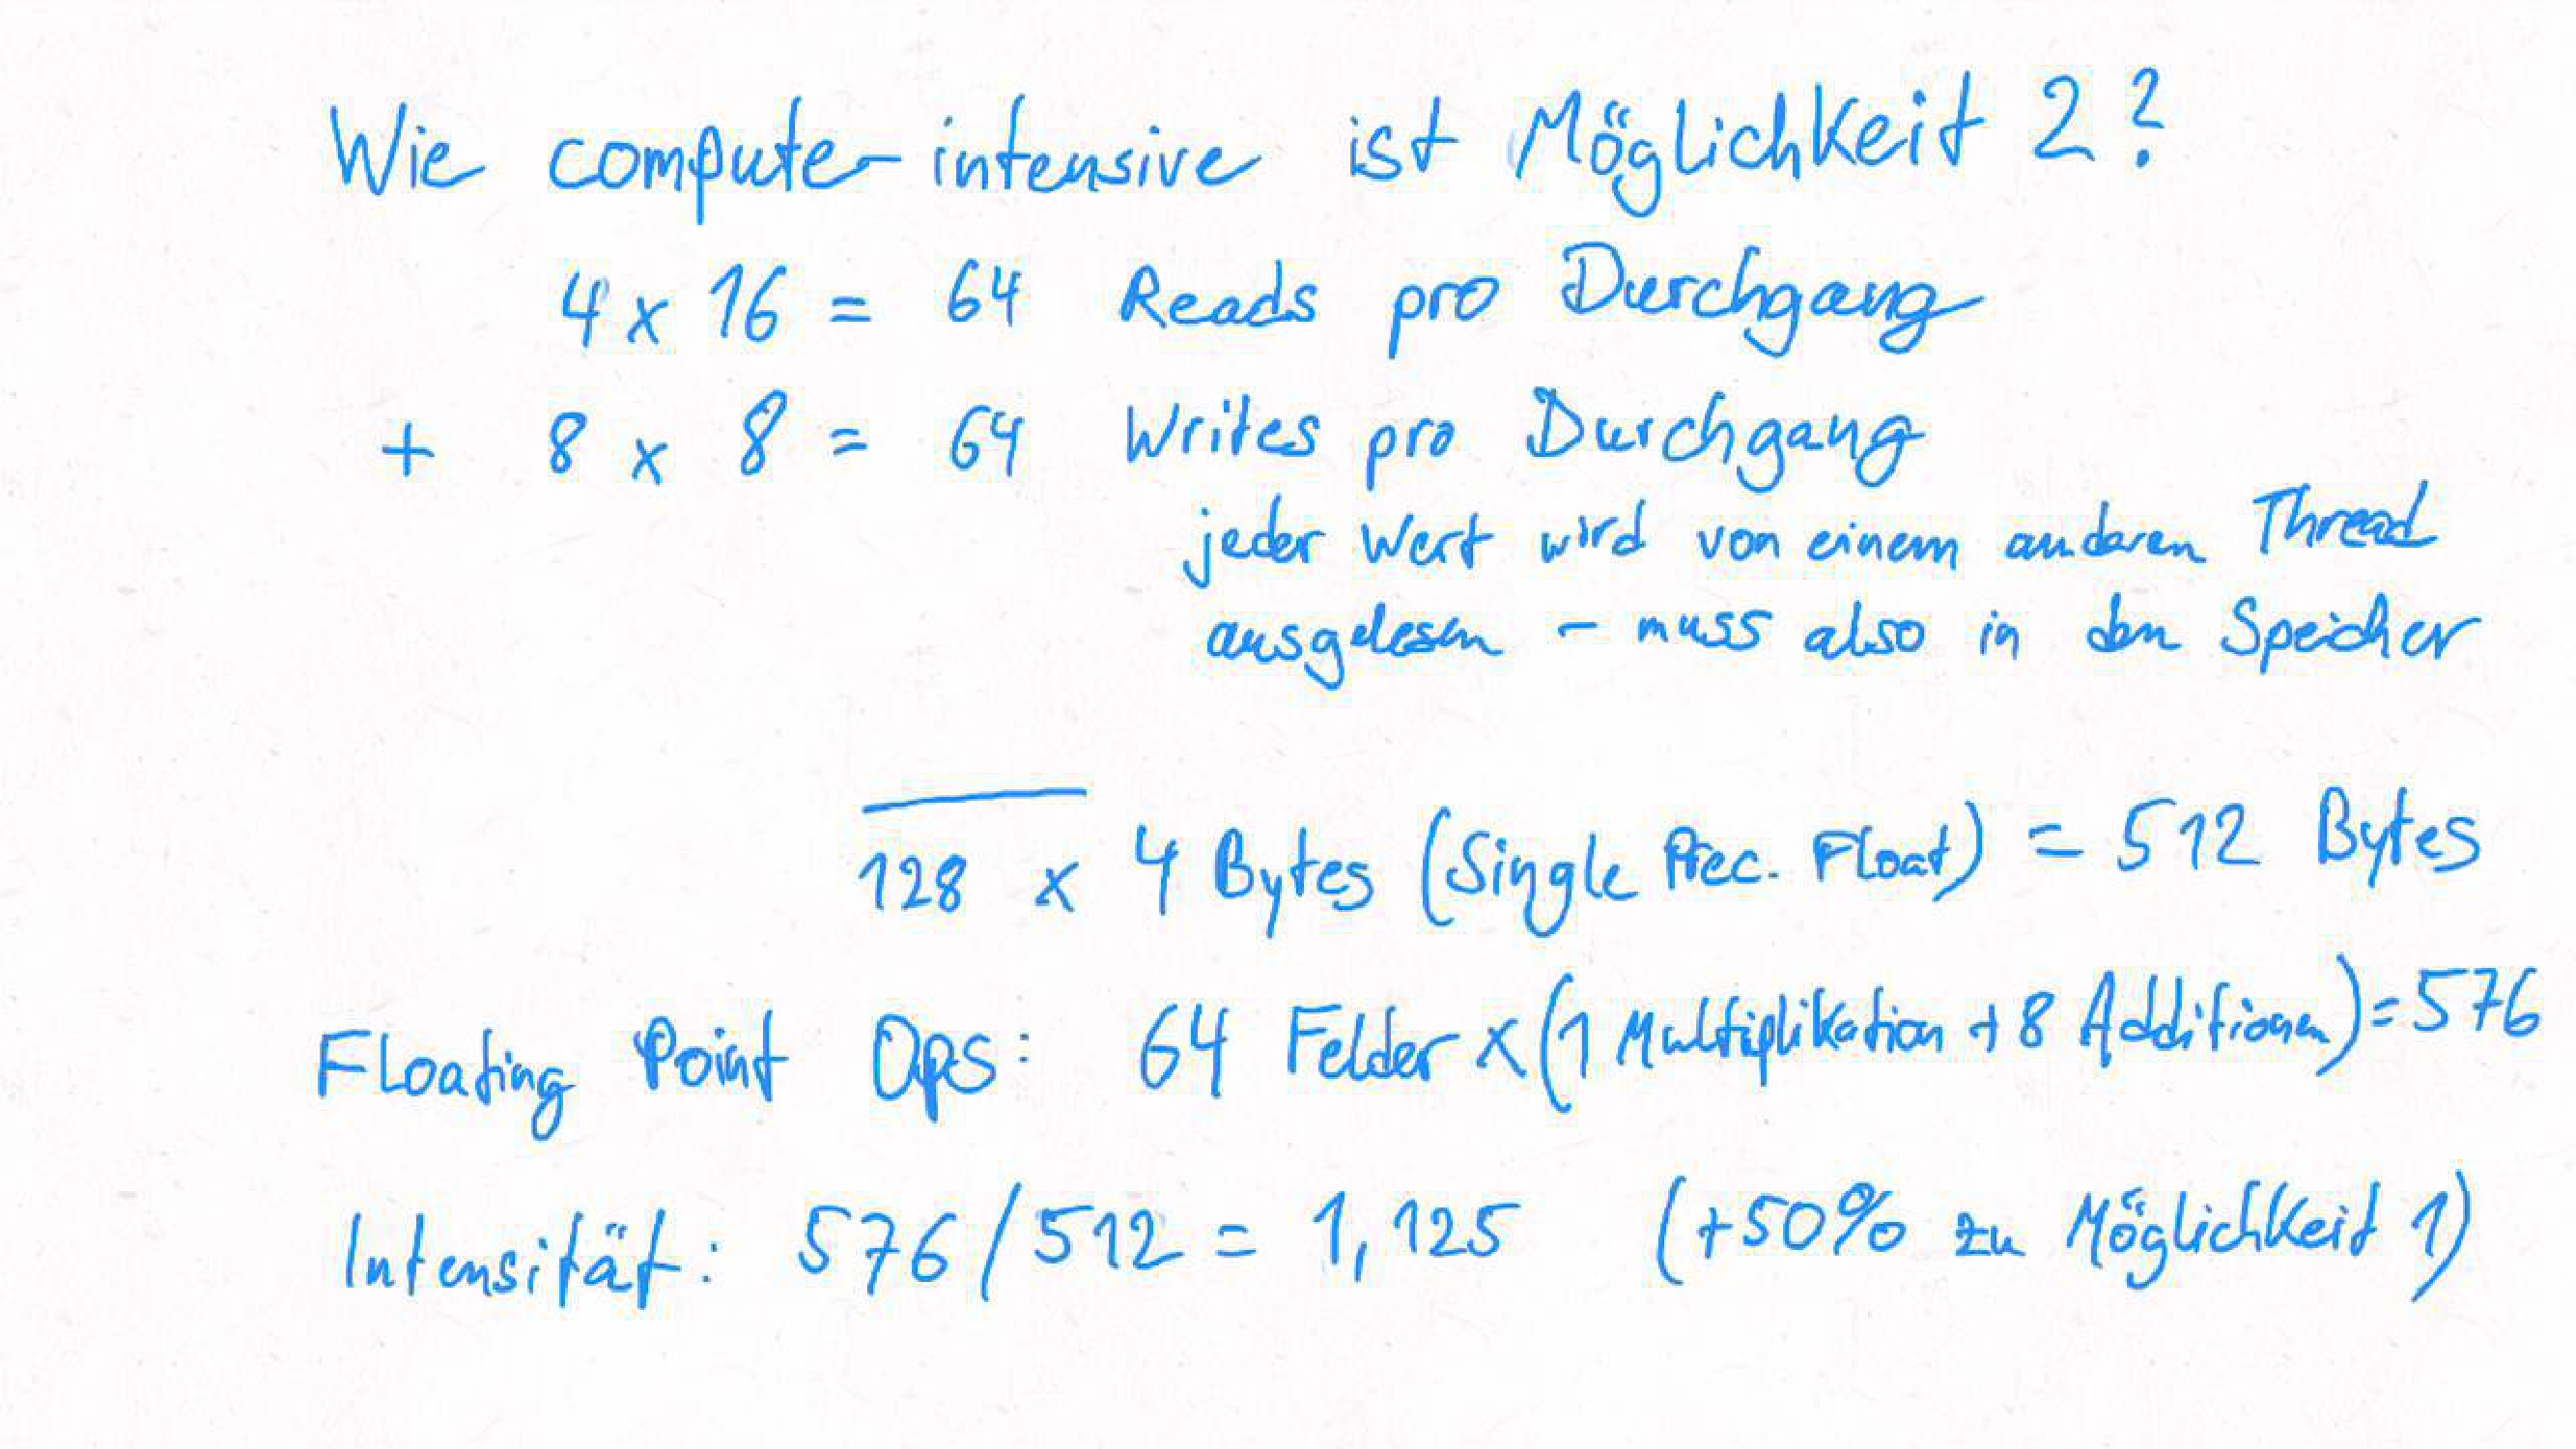 Wie computer-intensive ist Möglichkeit 2?
4 x 16 = 64 Reads pro Durchgang
+ 8 x 8 = 64 Writes pro Durchgang
jeder Wert wird von einem anderen Thread
ausgelesen - muss also in den Speicher
128 x 4 Bytes (Single Prec. Float) = 512 Bytes
Floating Point Ops: 64 Felder x (1 Multiplikation + 8 Additionen) = 576
Intensität: 576 / 512 = 1,125 (+50% zu Möglichkeit 1)